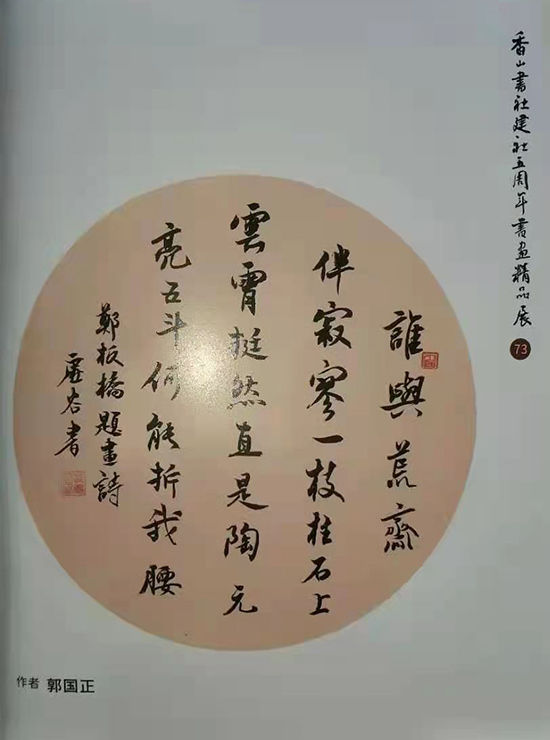 香山書社建社五周年書画精品展
73
誰與荒齋
伴寂寥一枝柱石上
雲霄挺然直是陶元
亮五斗何能折我腰
鄭板橋題畫詩
虛谷書
作者 郭国正